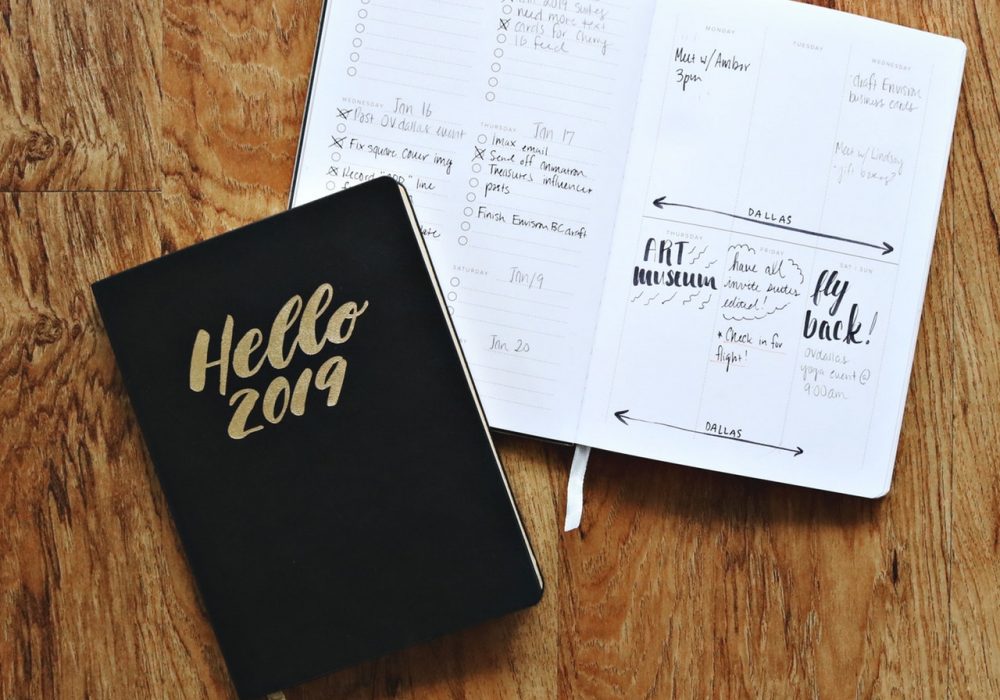 Hello
2019
2019 suites
need more text
cards for Cherry
IG feed
WEDNESDAY Jan 16
Post OVdallas event
Fix square cover img
Record "APP" line
THURSDAY Jan 17
Imax email
Send off animation
Treasures influencer
posts
Finish Envision BC draft
SATURDAY Jan 19
Jan 20
MONDAY
Meet w/ Amber
3pm
TUESDAY
WEDNESDAY
draft Envision
business cards
Meet w/ Lindsay
"gift boxes?"
DALLAS
THURSDAY
ART
museum
FRIDAY
have all
invite suites
edited!
* Check in for
flight!
SAT | SUN
fly
back!
OVdallas
yoga event @
9:00am
DALLAS